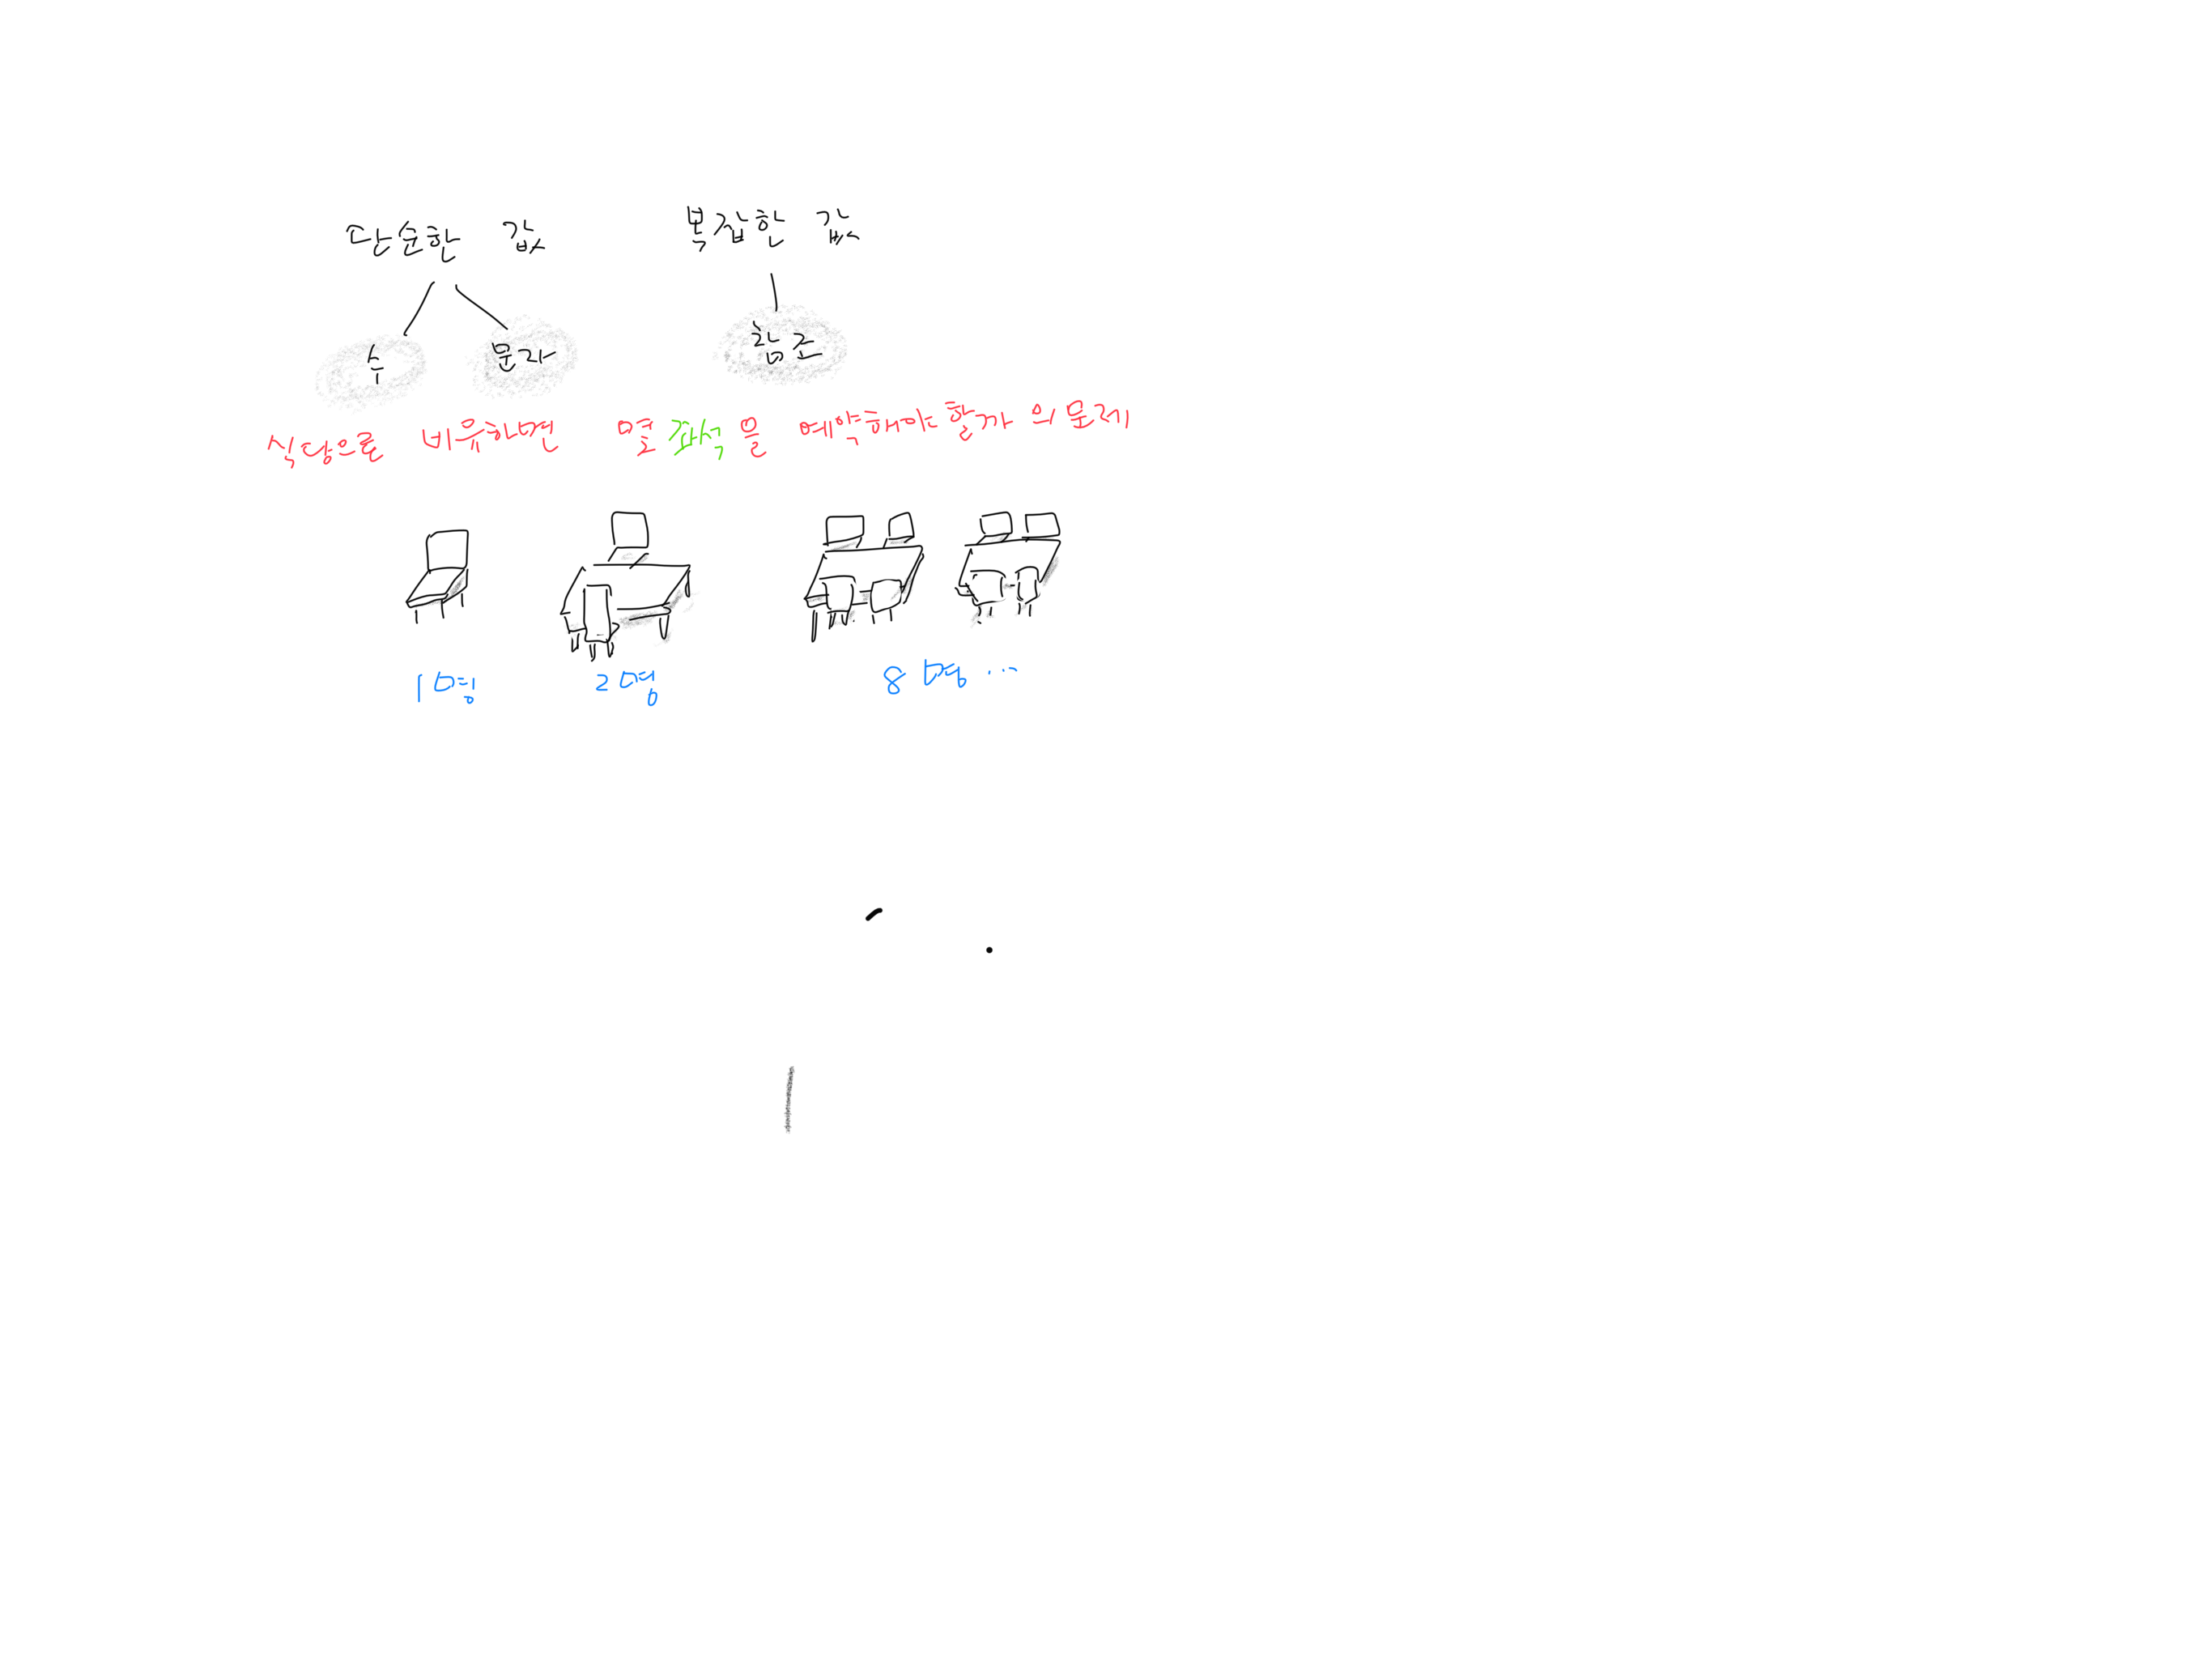 단순한 값 복잡한 값
수 문자 참조
식당으로 비유하면 몇 좌석을 예약해야할까 의 문제
1명 2명 8명...